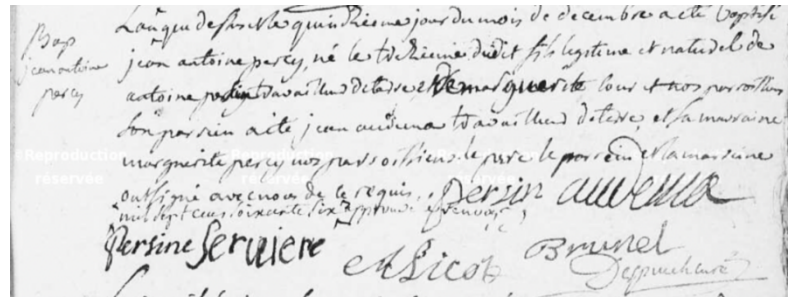 Bap
jean antoine
percy
L'an que dessus le quinzieme jour du mois de decembre a eté baptisé
jean antoine percy, né le treizieme dudit fils legitime et naturel de
antoine percy travailleur de terre et de marguerite lour et nos parroissiens
son parrien a eté jean audema travailleur de terre, et sa marraine
marguerite percy nos parroissiens le pere le parrein et la marreine
ont signé avec nous de ce requis. Persin audema
mil sept cens soixante six approuvé
Persine Serviere
A Sicot Brunel